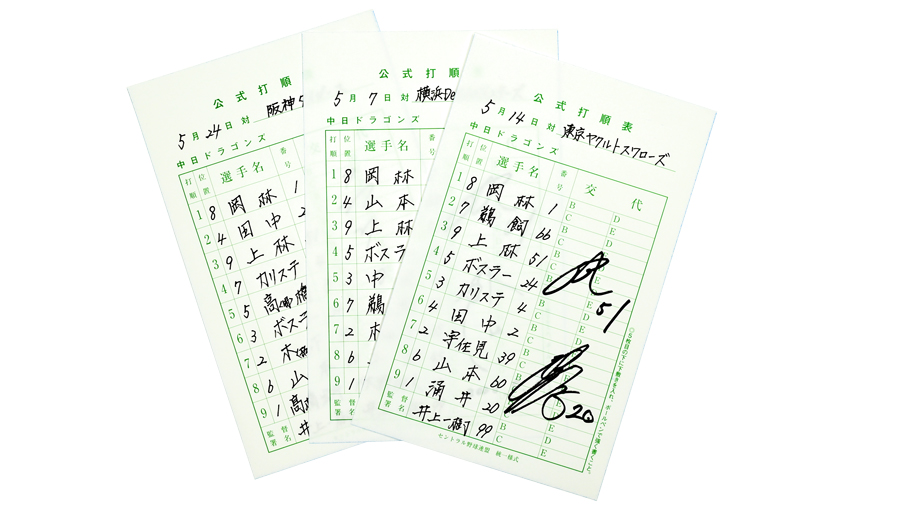 公式打順
5月24日 対 阪神
中日ドラゴンズ
打順 位置 選手名 番号
1 8 岡林 1
2 4 田中 2
3 9 上林
4 7 カリステ
5 5 高橋
6 3 ボスラ
7 2 木
8 6 山
9 1 高
監督署名 井
公式打順
5月7日 対 横浜De
中日ドラゴンズ
打順 位置 選手名 番号
1 8 岡林
2 4 山本
3 9 上林
4 5 ボスラ
5 3 中
6 7 鵜
7 2 木
8 6
9 1
監督署名
公式打順表
5月14日 対 東京ヤクルトスワローズ
中日ドラゴンズ
打順 位置 選手名 番号 交代
1 8 岡林 1 B D
2 7 鵜飼 66 C E
3 9 上林 51 B D
4 5 ボスラー 24 C
5 3 カリステ 4 B
6 4 田中 2 C
7 2 宇佐見 39 B
8 6 山本 60 C
9 1 涌井 20 B
監督署名 井上一樹 99 C E
51
20
○5枚目の下に下敷きを入れ、ボールペンで強く書くこと。
セントラル野球連盟 統一様式